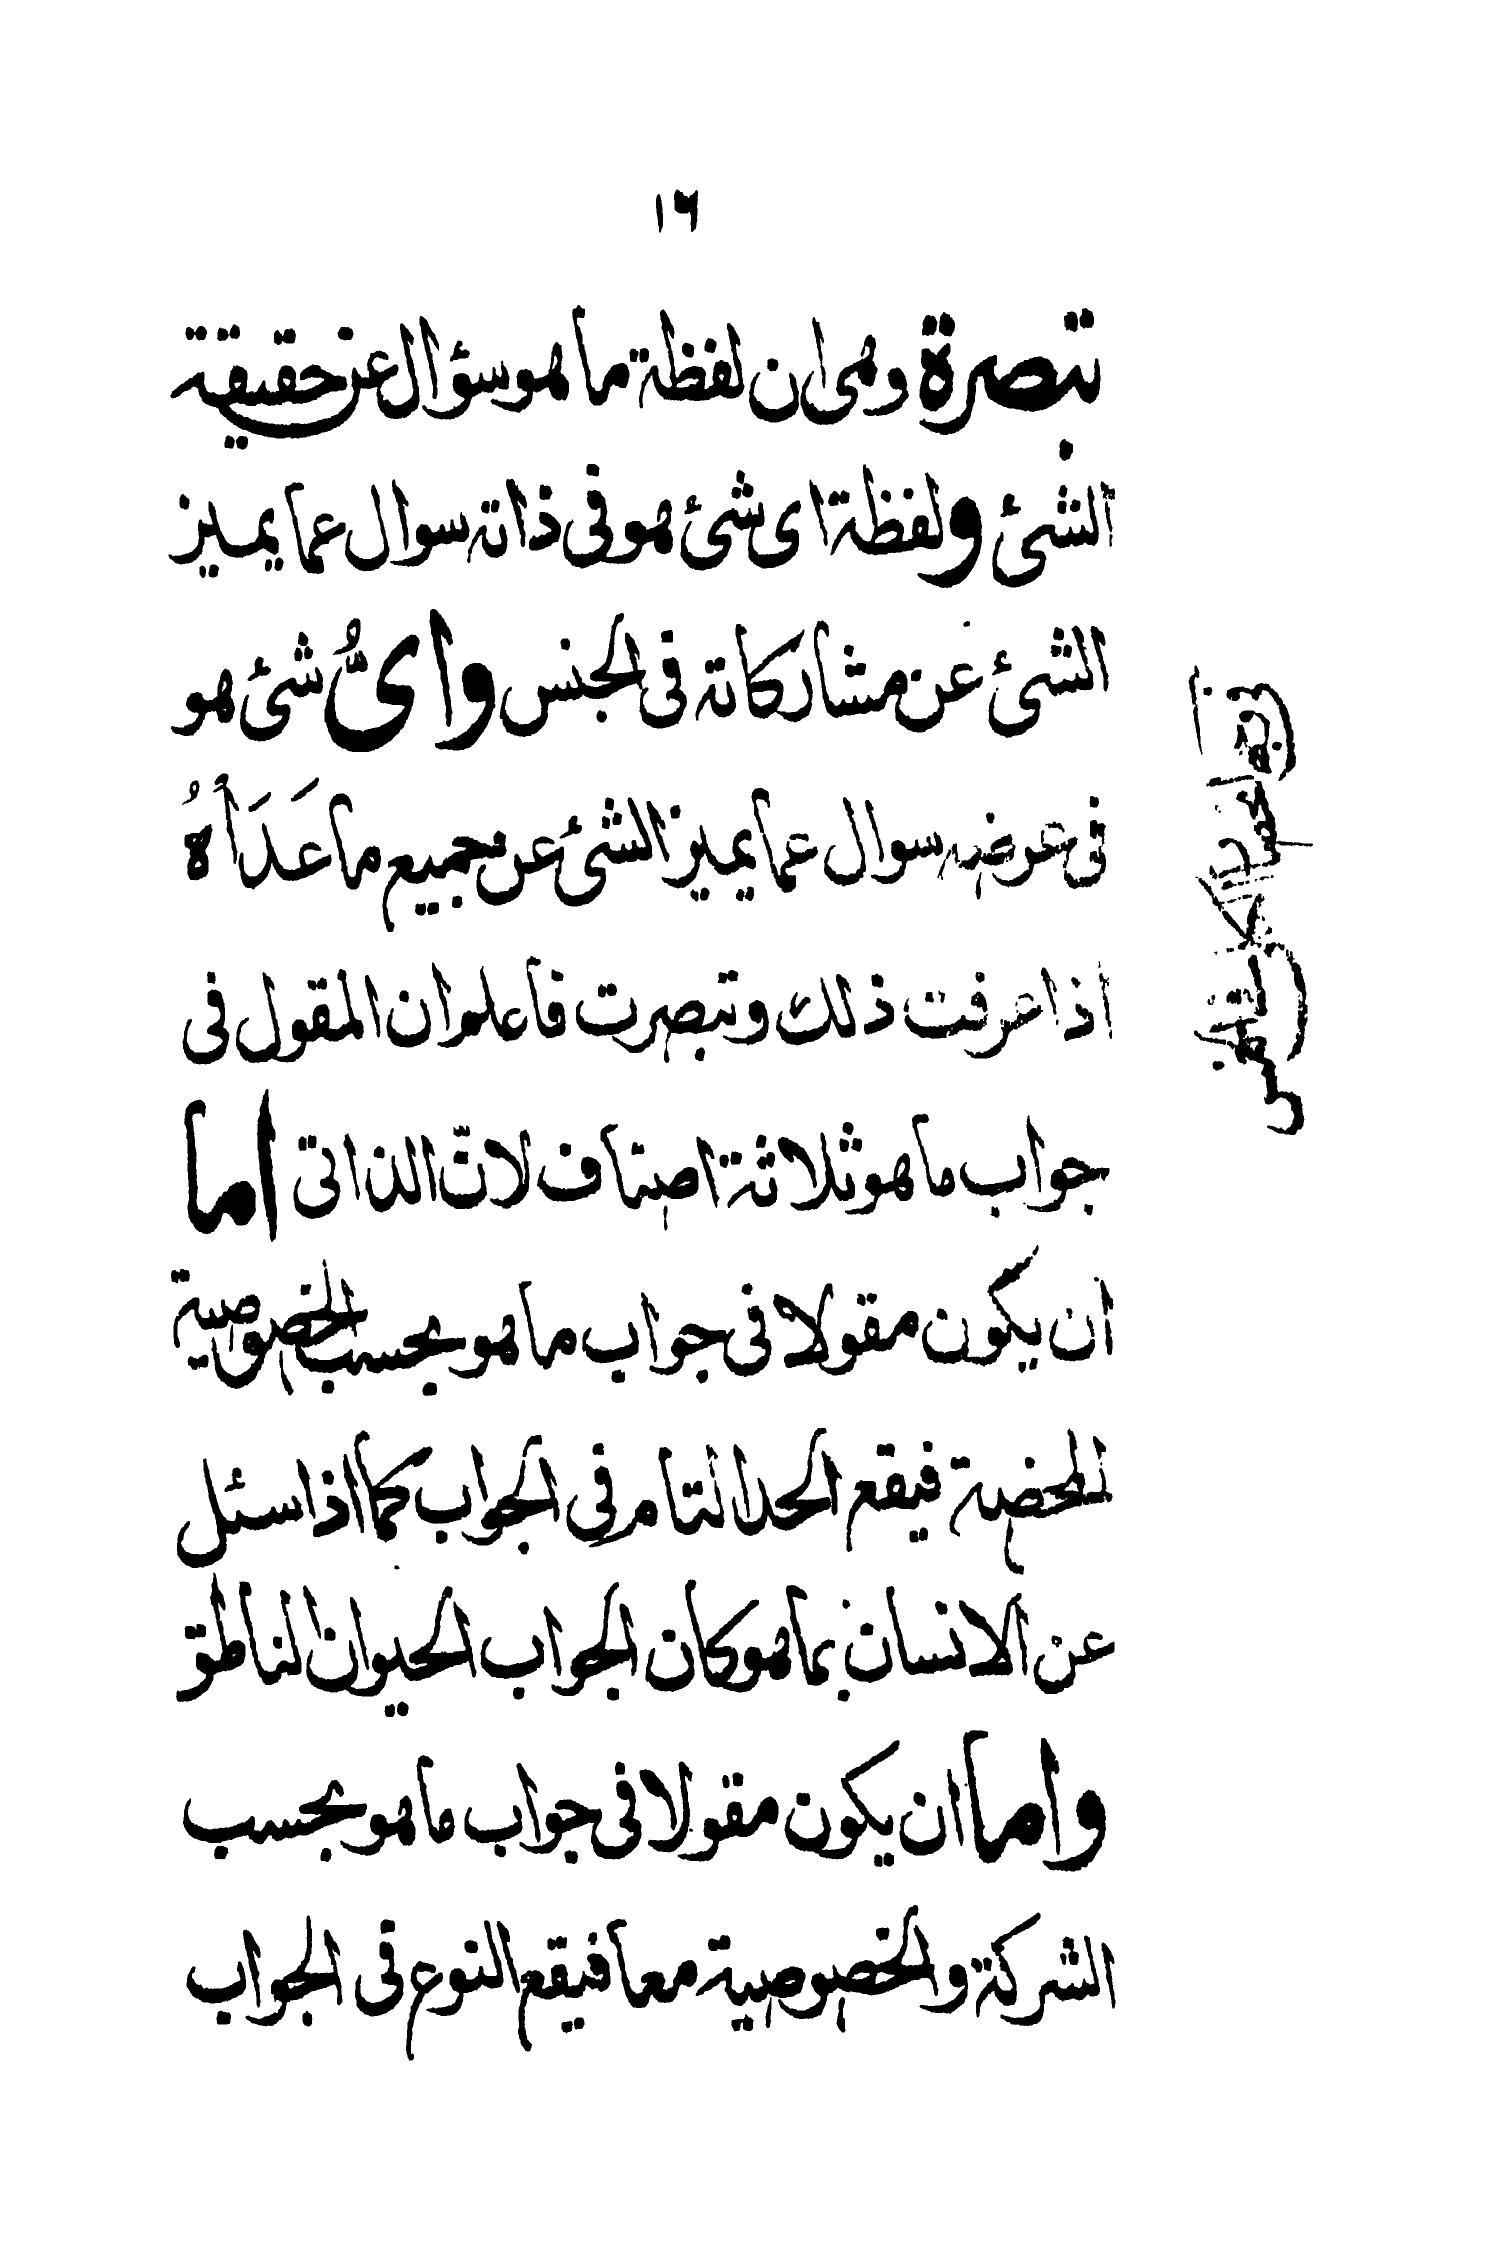 ١٦
تبصرة وهى ان لفظة ما هو سؤال عن حقيقة
الشئ ولفظة اى شئ هو فى ذاته سوال عما يميز
الشئ عن مشاركاته فى الجنس واىُّ شئ هو
فى عرضه سوال عما يميز الشئ عن جميع ما عَدَاهُ
اذا عرفت ذلك وتبصرت فاعلم ان المقول فى
جواب ما هو ثلاثة اصناف لانّ الذاتى اما
ان يكون مقولا فى جواب ما هو بحسب الخصوصية
المحضة فيقع الحد التام فى الجواب كما اذا سئل
عن الانسان بما هو كان الجواب الحيوان الناطق
واما ان يكون مقولا فى جواب ما هو بحسب
الشركة والخصوصية معا فيقع النوع فى الجواب